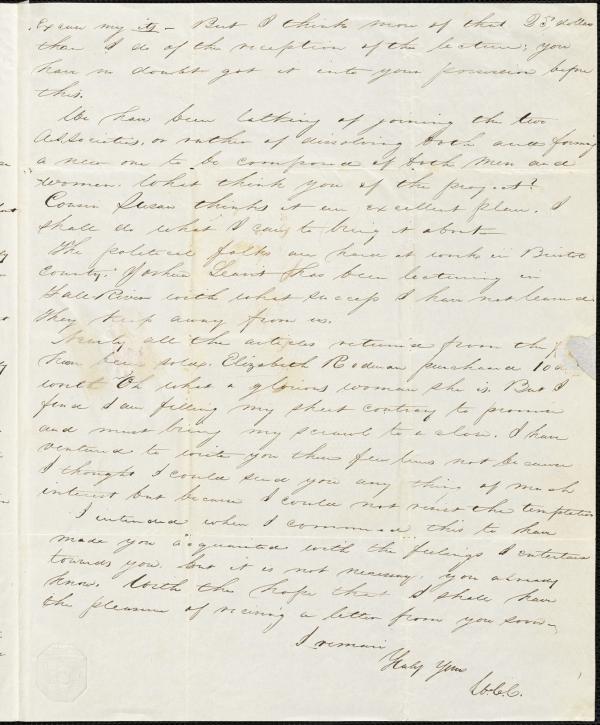 Excuse my its - But I think more of that 25 dollars
than I do of the reception of the lecture; you
have no doubt got it into your possession before
this.
We have been talking of joining the two
Associaties, or rather of dissolving both and forming
a new one to be composed of both men and
women. What think you of the project?
Cousin Susan thinks it an excellent plan. I
shall do what I can to bring it about
The political folks are hard at work in Bristol
County. Joshua Leavit has been lecturing in
Fall River with what success I have not learned
They keep away from us.
Nearly all the articles returned from the
have been sold. Elizabeth Rodman purchased 10
worth Oh what a glorious woman she is. But I
find I am filling my sheet contrary to promise
and must bring my scrawl to a close. I have
ventured to write you these few lines not because
I thought I could send you any thing of much
interest but because I could not resist the temptation
I intended when I commenced this to have
made you acquanted with the feelings I entertain
towards you, but it is not necessary, you already
know. With the hope that I shall have
the pleasure of reciving a letter from you soon -
I remain
Truly Yours
W.C.C.